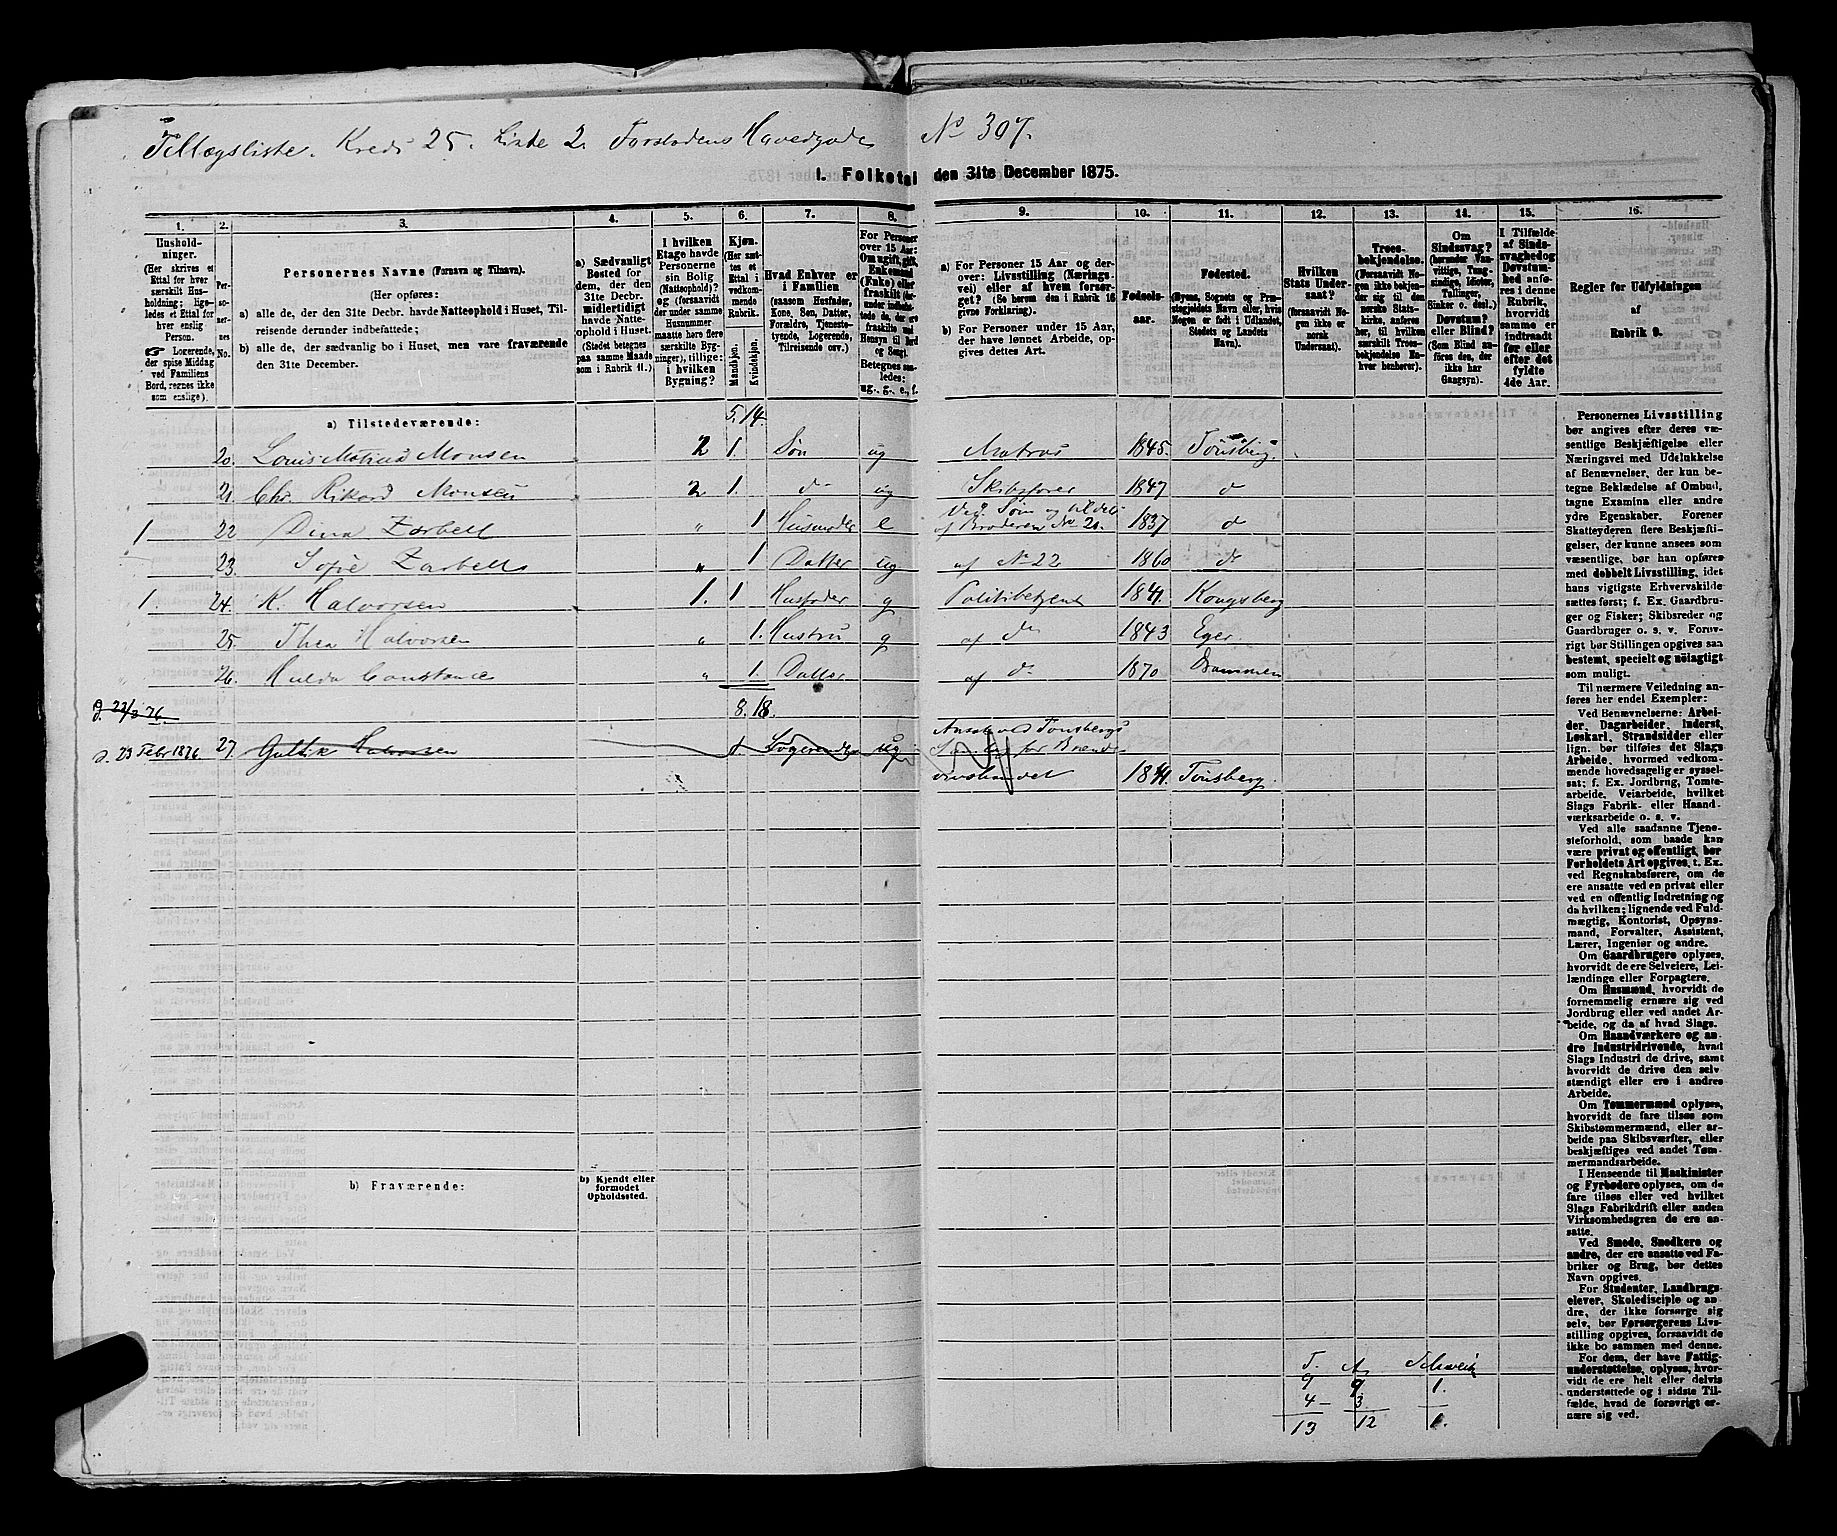 Tillægsliste. Kreds 25. Liste 2. Forstadens Hovedgade No 307.
1. Folketal den 31te December 1875.
1. 2. 3. 4. 5. 6. 7. 8. 9. 10. 11. 12. 13. 14. 15. 16.
Husholdninger. (Her skrives et Ettal for hver særskilt Husholdning; ligeledes et Ettal for hver enslig Person. ☞ Logerende, der spise Middag ved Familiens Bord, regnes ikke som enslige).
Personernes No.
Personernes Navne (Fornavn og Tilnavn).
(Her opføres:
a) alle de, der den 31te Decbr. havde Natteophold i Huset, Tilreisende derunder indbefattede;
b) alle de, der sædvanlig bo i Huset, men vare fraværende den 31te December.
a) Sædvanligt Bosted for dem, der den 31te Decbr. midlertidigt havde Natteophold i Huset. (Stedet betegnes paa samme Maade som i Rubrik 11.)
I hvilken Etage havde Personerne sin Bolig (Natteophold)? og (forsaavidt der under samme Husnummer maatte høre flere særskilte Bygninger), tillige: i hvilken Bygning?
Kjøn. (Her sættes et Ettal i vedkommende Rubrik.
Mandkjøn. Kvindekjøn.
Hvad Enhver er i Familien (saasom Husfader, Kone, Søn, Datter, Forældre, Tjenestetyende, Logerende, Tilreisende osv.)
For Personer over 15 Aar: Om ugift, gift, Enkemand (Enke) eller fraskilt
Betegnes saaledes: ug., g., e., f.
a) For Personer 15 Aar og derover: Livsstilling (Næringsvei) eller af hvem forsørget? (Se herom den i Rubrik 16 givne Forklaring).
b) For Personer under 15 Aar, der have lønnet Arbeide, opgives dettes Art.
Fødselsaar.
Fødested. (Byens, Sognets og Præstegjeldets Navn eller, hvis Nogen er født i Udlandet, Stedets og Landets Navn).
Hvilken Stats Undersaat? (forsaavidt Nogen ikke er norsk Undersaat).
Troesbekjendelse. (Forsaavidt Nogen ikke bekjender sig til den norske Statskirke, anføres her, til hvilken særskilt Troesbekjendelse Enhver henhører).
Om Sindssvag? (herunder Vanvittige, Tungsindige, Idioter, Tullinger, Sinker o. desl.) Døvstum? eller Blind? (Som Blind anføres den, der ikke har Gangsyn).
I Tilfælde af Sindssvaghed og Døvstumhed anføres i denne Rubrik, hvorvidt samme er indtraadt før eller efter det fyldte 4de Aar.
Regler for Udfyldningen af Rubrik 9.
a) Tilstedeværende: 5. 14.
20. Louis Matias Monsen 2 1. Søn ug Matros 1845. Tönsberg.
21. Chr. Rikard Monsen 2 1. do ug Skibsfører 1847 do
1 22 Dina Zarbell " 1 Husmoder e 1837 do
af Broderen No 20.
23. Sofie Zarbell " 1 Datter ug af No 22 1860 do
1. 24. K. Halvorsen 1. 1 Husfader g Politibetjent 1841. Kongsberg
25. Thea Halvorsen " 1. Hustru g af do 1843 Eger.
26. Hulda Constance " 1. Datter af do 1870 Drammen
8. 18.
d. 23 Febr 1876. 27. Logerende ug Ansat ved Tönsbergs Samlag for Brændevinshandel 1841. Tönsberg.
b) Fraværende:
b) Kjendt eller formodet Opholdssted.
Personernes Livsstilling bør angives efter deres væsentlige Beskjæftigelse eller Næringsvei med Udelukkelse af Benævnelser, der kun betegne Beklædelse af Ombud, tagne Examina eller andre ydre Egenskaber. Forener Skatteyderen flere Beskjæftigelser, der kunne ansees som væsentlige, bør han opføres med dobbelt Livsstilling, idet hans vigtigste Erhvervskilde sættes først; f. Ex. Gaardbruger og Fisker; Skibsreder og Gaardbruger o. s. v. Forøvrigt bør Stillingen opgives saa bestemt, specielt og nøiagtigt som muligt.
Til nærmere Veiledning anføres her endel Exempler:
Ved Benævnelserne: Arbeider, Dagarbeider, Inderst, Løskarl, Strandsidder eller lign. bør tilføies det Slags Arbeide, hvormed vedkommende hovedsagelig er sysselsat; f. Ex. Jordbrug, Tomtearbeide, Veiarbeide, hvilket Slags Fabrik- eller Haandværksarbeide o. s. v.
Ved alle saadanne Tjenesteforhold, som baade kan være privat og offentligt, bør Forholdets Art opgives, t. Ex. ved Regnskabsførere, om de ere ansatte ved en privat eller ved en offentlig Indretning og da hvilken; lignende ved Fuldmægtig, Kontorist, Opsynsmand, Forvalter, Assistent, Lærer, Ingeniør og andre.
Om Gaardbrugere oplyses, hvorvidt de ere Selveiere, Leilændinge eller Forpagtere.
Om Husmænd, hvorvidt de fornemmelig ernære sig ved Jordbrug eller ved andet Arbeide, og da af hvad Slags.
Om Haandværkere og andre Industridrivende, hvad Slags Industri de drive, samt hvorvidt de drive den selvstændigt eller ere i andres Arbeide.
Om Tømmermænd oplyses, hvorvidt de fare tilsøs som Skibstømmermænd, eller arbeide paa Skibsværfter, eller beskjæftiges ved andet Tømmermandsarbeide.
I Henseende til Maskinister og Fyrbødere oplyses, om de fare tilsøs eller ved hvilket Slags Fabrikdrift eller anden Virksomhedsgren de ere ansatte.
Ved Smede, Snedkere og andre, der ere ansatte ved Fabriker og Brug, bør dettes Navn opgives.
For Studenter, Landbrugselever, Skoledisciple og andre, der ikke forsørge sig selv, bør Forsørgerens Livsstilling opgives, forsaavidt de ikke bo sammen med denne.
For dem, der have Fattigunderstøttelse, oplyses, hvorvidt de ere helt eller delvis understøttede og i sidste Tilfælde, hvad de forøvrigt ernære sig ved.
9 9 1.
4 - 3
13 12 1.